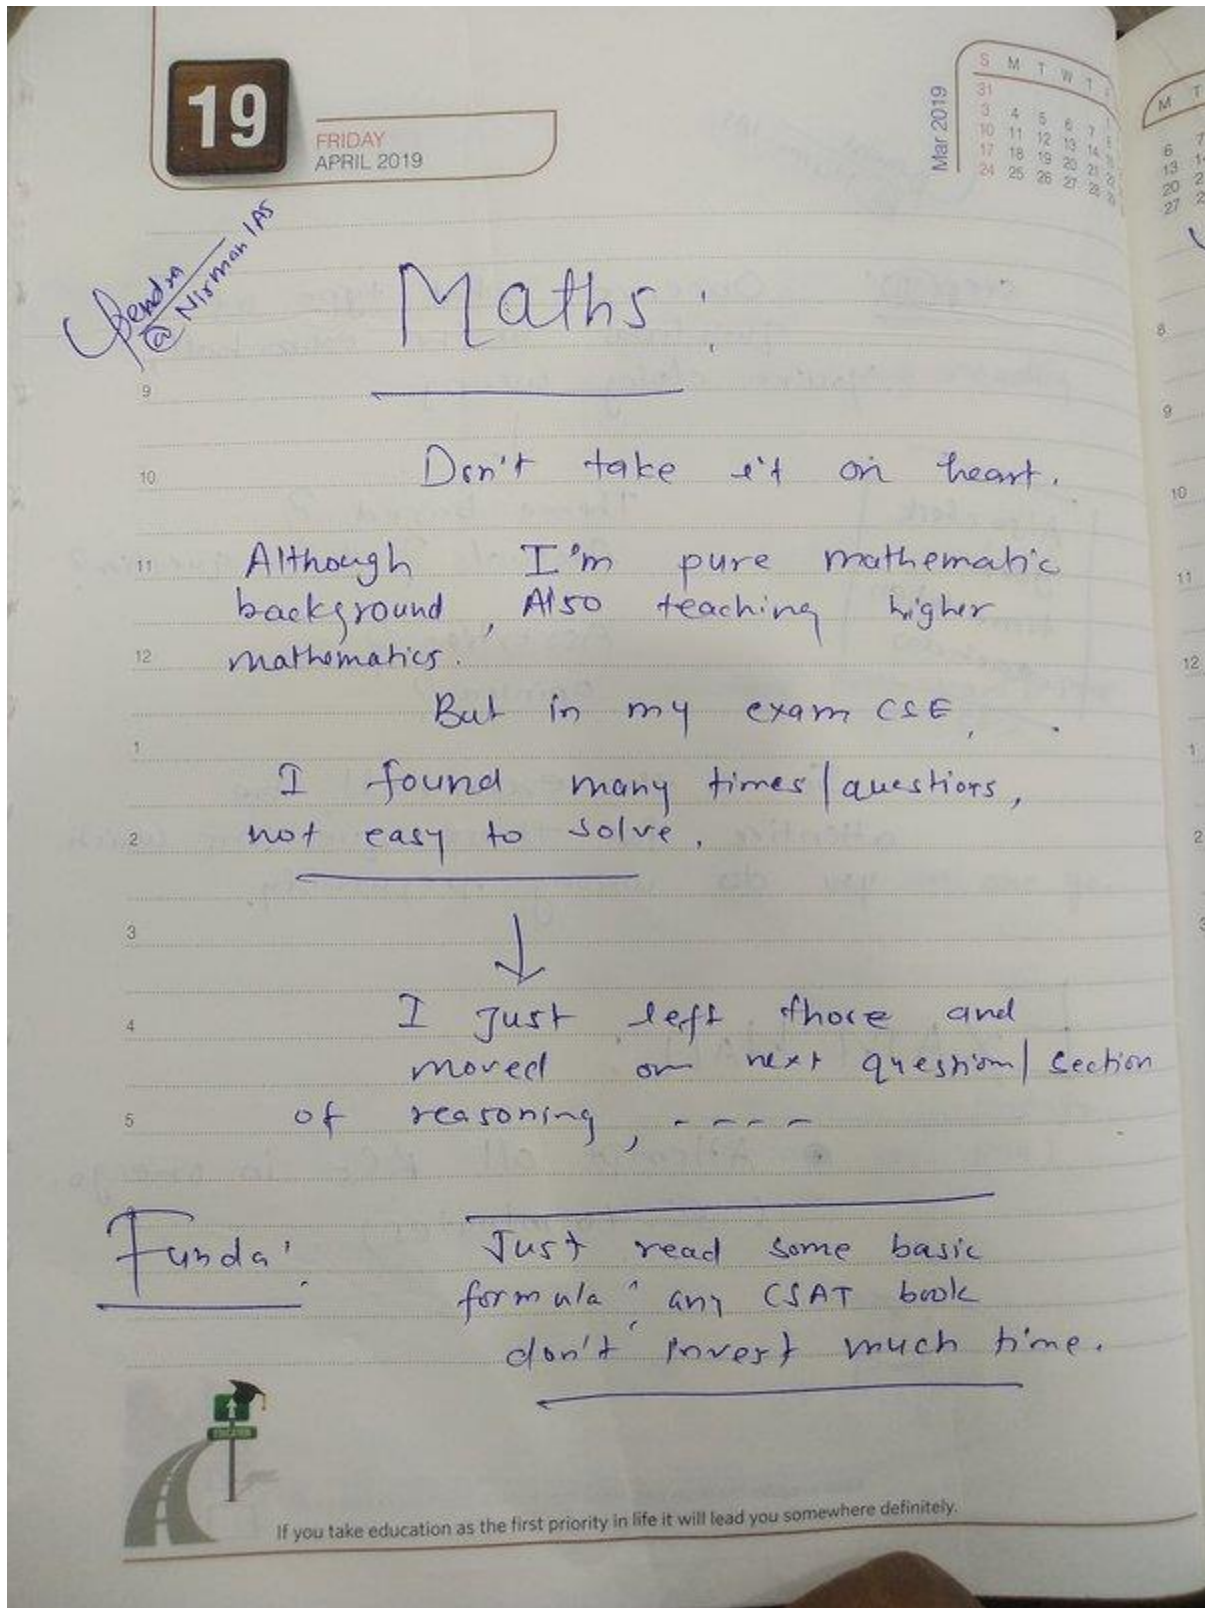 19
FRIDAY
APRIL 2019
Mar 2019
S M T W T F
31
3 4 5 6 7
10 11 12 13 14
17 18 19 20 21
24 25 26 27 28
M T
6 7
13
20 2
27 2
Upendra
@ Nirman IAS
Maths:
8
9
9
Don't take it on heart.
10
10
Although I'm pure mathematic
11
11
background, Also teaching higher
mathematics.
12
12
But in my exam CSE,
1
1
I found many times/questions,
not easy to solve.
2
2
3
I Just left those and
4
moved on next question/section
of reasoning, - - - -
5
Funda:
Just read some basic
formula; any CSAT book
don't invest much time.
EDUCATION
If you take education as the first priority in life it will lead you somewhere definitely.